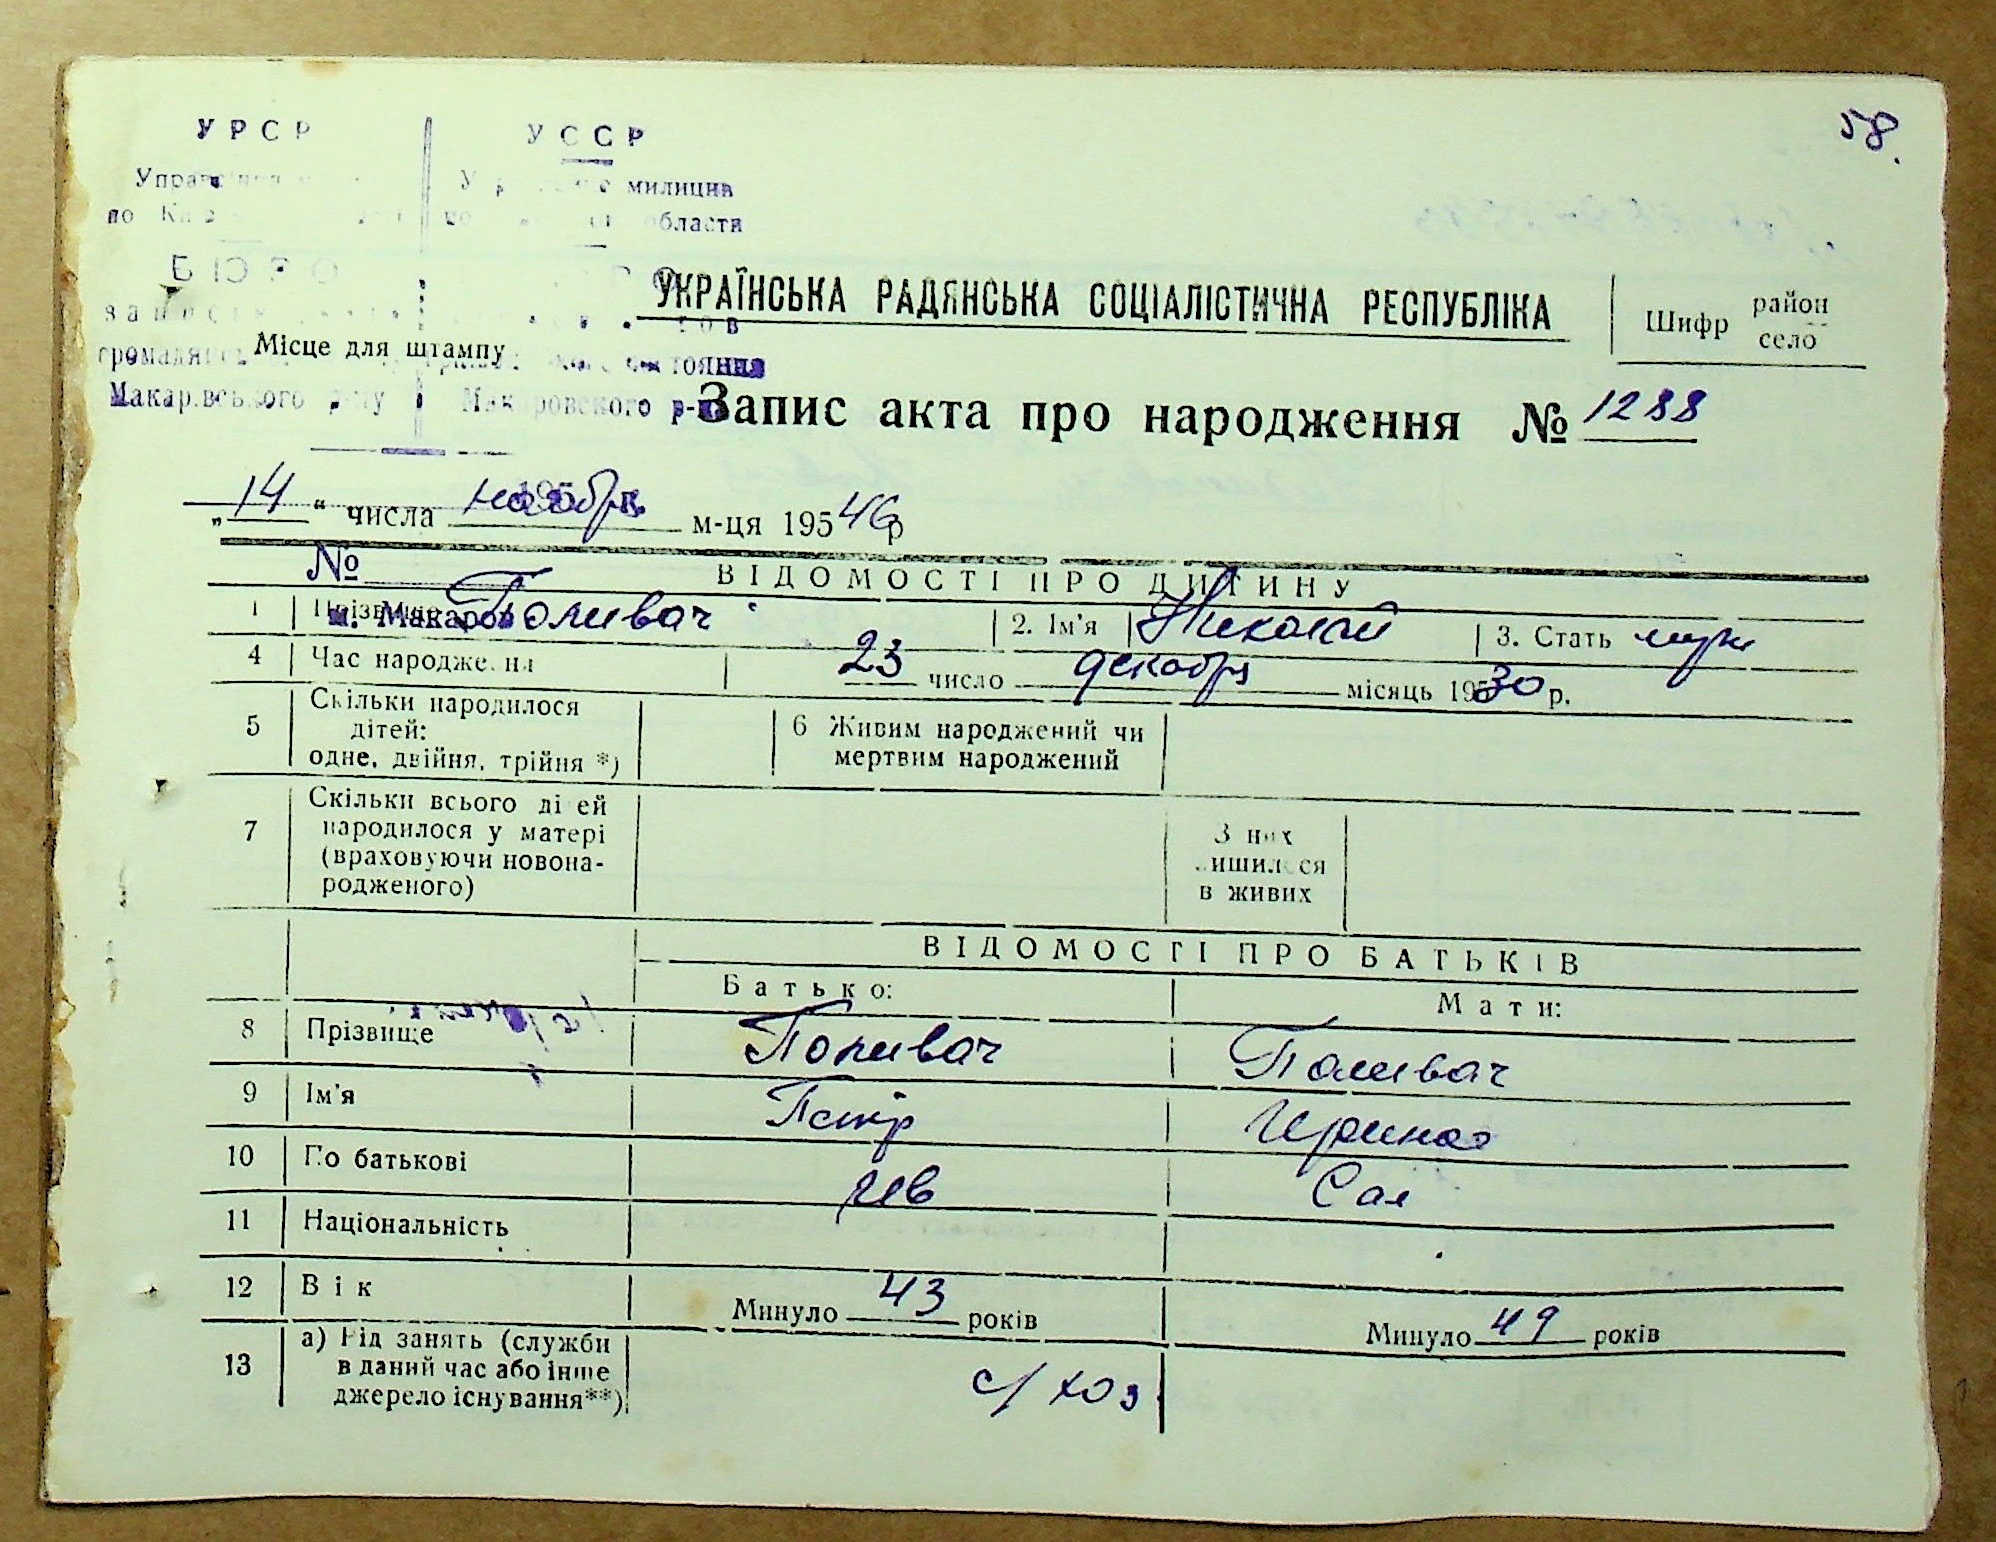 58.
УРСР УССР
милиции
по области
БЮРО
УКРАЇНСЬКА РАДЯНСЬКА СОЦІАЛІСТИЧНА РЕСПУБЛІКА
Шифр район село
Місце для штампу
Макаровського Макаровского р-на
Запис акта про народження № 1288
„14“ числа ноября м-ця 195 46 р
№
ВІДОМОСТІ ПРО ДИТИНУ
м. Макаров
1 Прізвище Поливач 2. Ім'я Николай 3. Стать муж
4 Час народження 23 число декабря місяць 195 30 р.
5 Скільки народилося дітей: одне, двійня, трійня *) 6 Живим народжений чи мертвим народжений
7 Скільки всього дітей народилося у матері (враховуючи новонародженого) З них лишилося в живих
ВІДОМОСТІ ПРО БАТЬКІВ
Батько: Мати:
8 Прізвище Поливач Поливач
9 Ім'я Петр Ирина
10 По батькові Сав
11 Національність
12 Вік Минуло 43 років Минуло 49 років
13 а) Рід занять (служби
в даний час або інше
джерело існування**) с/хоз